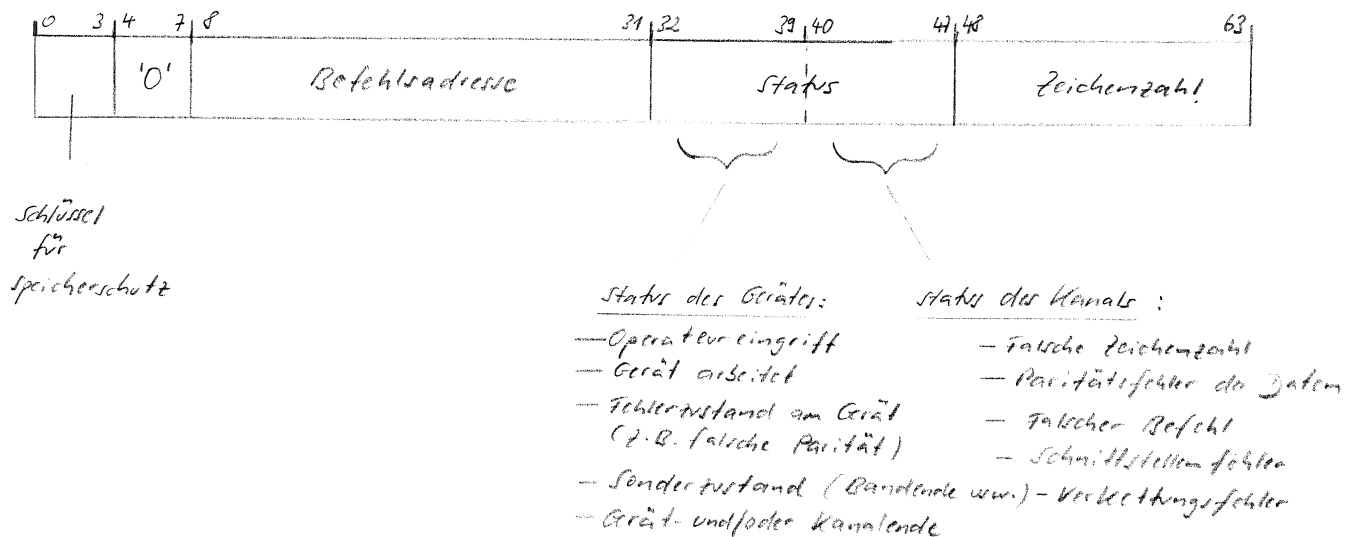 0 3 4 7 8 31 32 39 40 47 48 63
'0' Befehlsadresse Status Zeichenzahl
Schlüssel
für
Speicherschutz
Status des Gerätes:
— Operateureingriff
— Gerät arbeitet
— Fehlerzustand am Gerät
(z.B. falsche Parität)
— Sonderzustand (Bandende usw.)
— Gerät- und/oder Kanalende
Status des Kanals :
— Falsche Zeichenzahl
— Paritätsfehler der Daten
— Falscher Befehl
— Schnittstellenfehler
— Verkettungsfehler